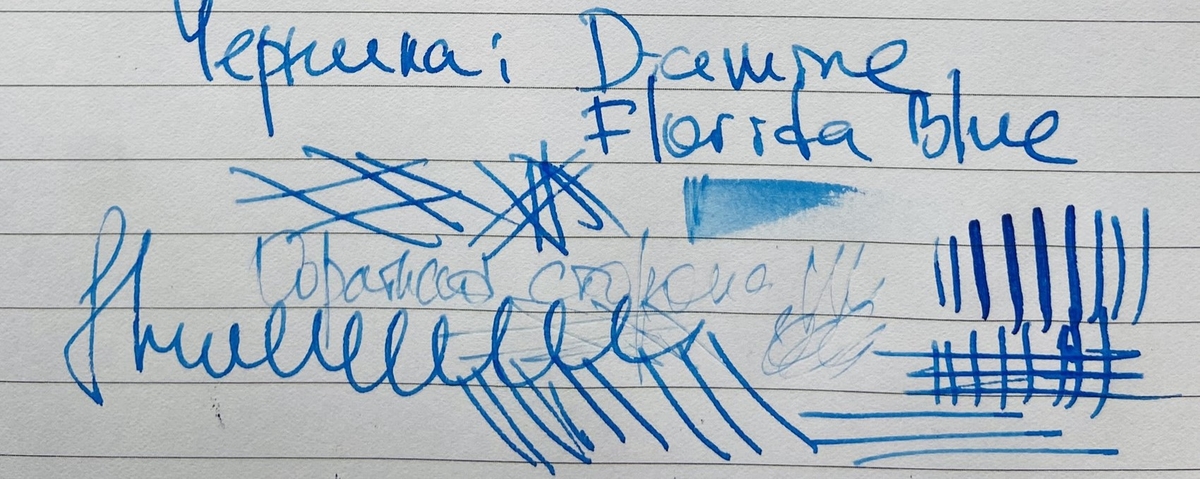 Чернила: Diamine
Florida Blue
Обратная сторона